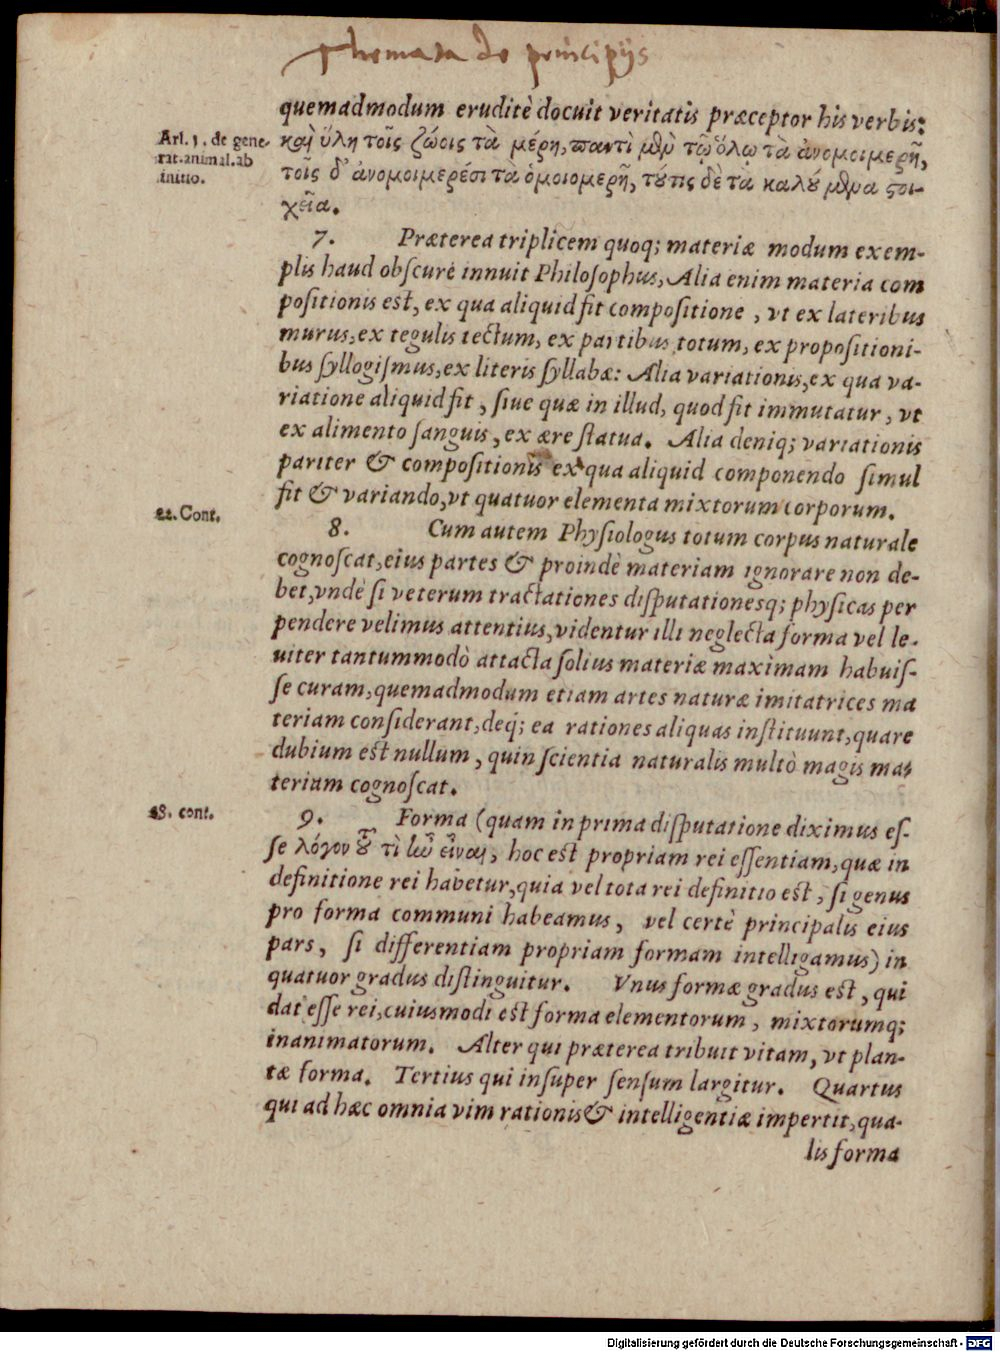 Themata de principijs
quemadmodum eruditè docuit veritatis præceptor his verbis:
Arl. 1. de gene-
rat. animal. ab
initio.
καὶ ὕλη τοῖς ζώοις τὰ μέρη, παντὶ μϑμ̀ τῷ ὅλῳ τὰ ἀνομοιμερῆ,
τοῖς δ' ἀνομοιμερέσι τὰ ὁμοιομερῆ, τύτις δὲ τὰ καλύμϑμα ςοι-
χεῖα.
7. Præterea triplicem quoq; materiæ modum exem-
plis haud obſcurè innuit Philoſophus, Alia enim materia com
poſitionis est, ex qua aliquid fit compoſitione, vt ex lateribus
murus, ex tegulis tectum, ex partibus totum, ex propoſitioni-
bus ſyllogiſmus, ex literis ſyllabæ: Alia variationis, ex qua va-
riatione aliquid fit, ſiue quæ in illud, quod fit immutatur, vt
ex alimento ſanguis, ex ære ſtatua. Alia deniq; variationis
pariter & compoſitionis ex qua aliquid componendo ſimul
fit & variando, vt quatuor elementa mixtorum corporum.
22. Cont.
8. Cum autem Phyſiologus totum corpus naturale
cognoſcat, eius partes & proindè materiam ignorare non de-
bet, vndè ſi veterum tractationes diſputationesq; phyſicas per
pendere velimus attentius, videntur illi neglecta forma vel le-
uiter tantummodò attacta ſolius materiæ maximam habuiſ-
ſe curam, quemadmodum etiam artes naturæ imitatrices ma
teriam conſiderant, deq; ea rationes aliquas inſtituunt, quare
dubium est nullum, quin ſcientia naturalis multò magis ma-
teriam cognoſcat.
28. cont.
9. Forma (quam in prima diſputatione diximus eſ-
ſe λόγον τοῦ τὶ ἰω̃ εἶναι, hoc est propriam rei eſſentiam, quæ in
definitione rei habetur, quia vel tota rei definitio est, ſi genus
pro forma communi habeamus, vel certè principalis eius
pars, ſi differentiam propriam formam intelligamus) in
quatuor gradus diſtinguitur. Vnus formæ gradus est, qui
dat eſſe rei, cuiusmodi est forma elementorum, mixtorumq;
inanimatorum. Alter qui præterea tribuit vitam, vt plan-
tæ forma. Tertius qui inſuper ſenſum largitur. Quartus
qui ad hæc omnia vim rationis & intelligentiæ impertit, qua-
lis forma
Digitalisierung gefördert durch die Deutsche Forschungsgemeinschaft - DFG